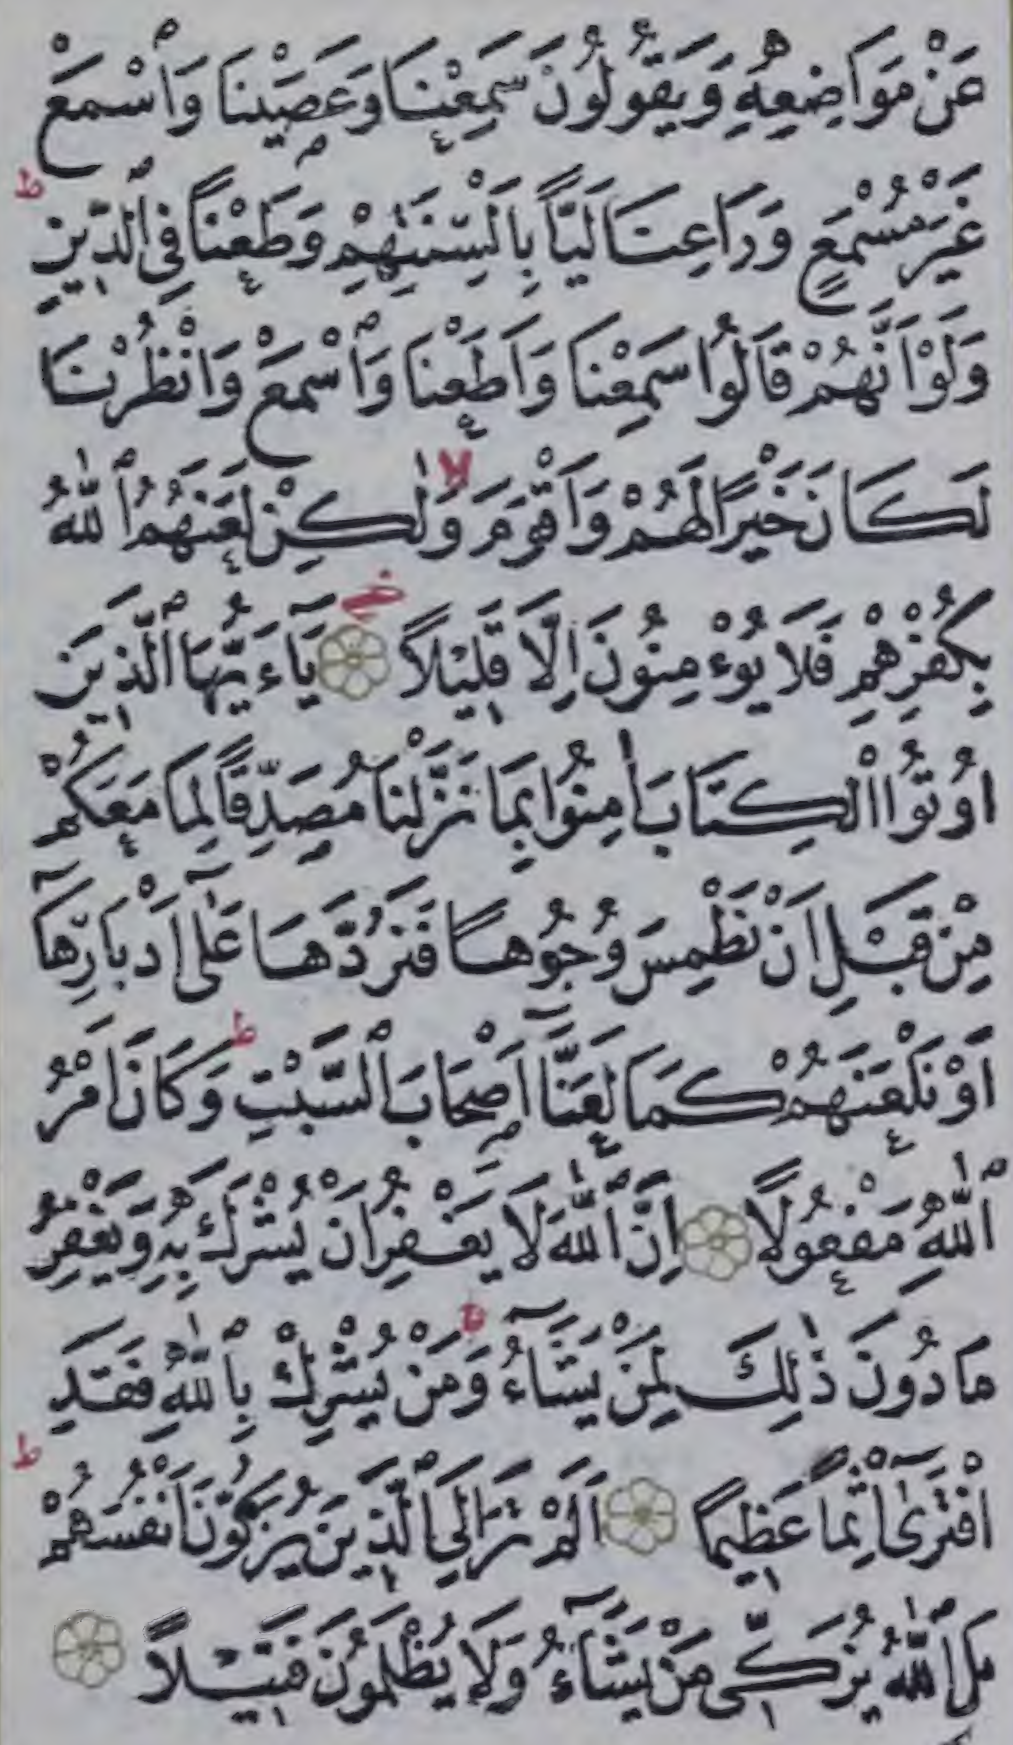 عَنْ مَوَاضِعِهِ وَيَقُولُونَ سَمِعْنَا وَعَصَيْنَا وَٱسْمَعْ
غَيْرَ مُسْمَعٍ وَرَاعِنَا لَيًّا بِاَلْسِنَتِهِمْ وَطَعْنًا فِي ٱلدِّينِ ط
وَلَوْ اَنَّهُمْ قَالُوا سَمِعْنَا وَاَطَعْنَا وَٱسْمَعْ وَانْظُرْنَا
لَكَانَ خَيْرًا لَهُمْ وَاَقْوَمَ لا وَلٰكِنْ لَعَنَهُمُ ٱللّٰهُ
بِكُفْرِهِمْ فَلَا يُوءْمِنُونَ اِلَّا قَلِيْلاً يَآءَيُّهَا ٱلَّذِينَ
اُوتُوا الْكِتَابَ اٰمِنُوا بِمَا نَزَّلْنَا مُصَدِّقًا لِمَا مَعَكُمْ
مِنْ قَبْلِ اَنْ نَطْمِسَ وُجُوهًا فَنَرُدَّهَا عَلٰٓى اَدْبَارِهَآ
اَوْ نَلْعَنَهُمْ كَمَا لَعَنَّآ اَصْحَابَ ٱلسَّبْتِ ط وَكَانَ اَمْرُ
ٱللّٰهِ مَفْعُولًا اِنَّ ٱللّٰهَ لَا يَغْفِرُ اَنْ يُشْرَكَ بِهِ وَيَغْفِرُ
مَا دُونَ ذٰلِكَ لِمَنْ يَشَآءُ ط وَمَنْ يُشْرِكْ بِٱللّٰهِ فَقَدِ
افْتَرٰٓى اِثْمًا عَظِيمًا اَلَمْ تَرَ اِلَى ٱلَّذِينَ يُزَكُّونَ اَنْفُسَهُمْ ط
بَلِ ٱللّٰهُ يُزَكِّى مَنْ يَشَآءُ وَلَا يُظْلَمُونَ فَتِيْلاً